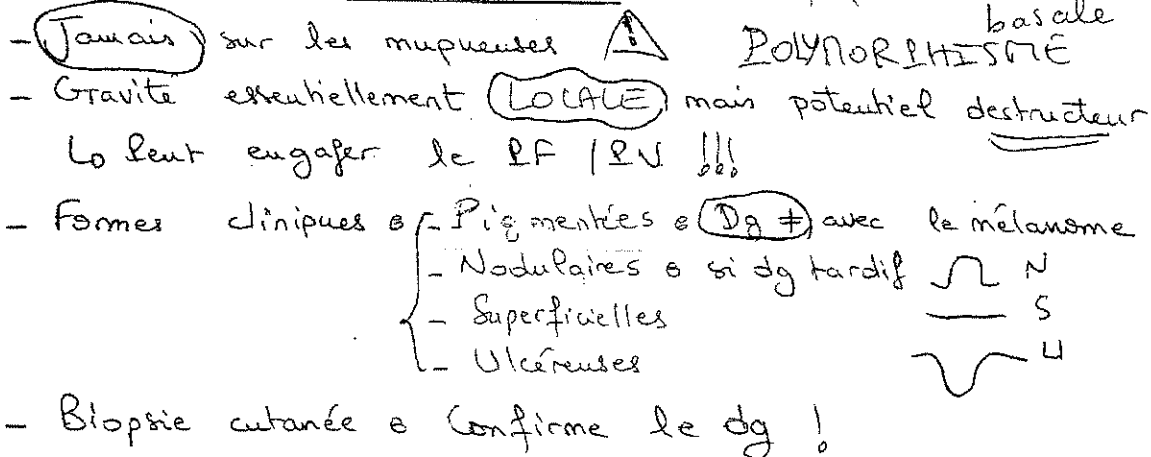 basale
- Jamais sur les muqueuses ⚠ POLYMORPHISME
- Gravité essentiellement LOCALE mais potentiel destructeur
↳ Peut engager le PF / PV !!!
- Formes cliniques : - Pigmentées : Dg ≠ avec le mélanome
- Nodulaires : si dg tardif N
- Superficielles S
- Ulcéreuses U
- Biopsie cutanée : Confirme le dg !